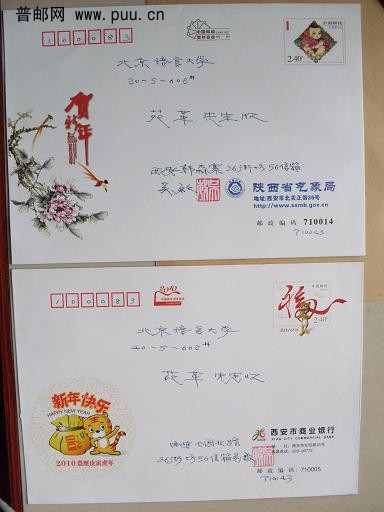 普邮网 www.puu.cn
100083
中国邮政
2.40元
北京语言大学
20-5-602#
苑革 先生收
贺年
西安韩森寨36街坊56信箱
陕西省气象局
地址:西安市北关正街36号
http://www.sxmb.gov.cn
邮政编码 710014
710043
100083
2010
中国邮政
2010
2.40
北京语言大学
20-5-602#
苑革 先生收
新年快乐
HAPPY NEW YEAR
2010 农历庚寅虎年
西安市商业银行
XI'AN CITY COMMERCIAL BANK
36街坊56信箱
邮政编码:710005
710043